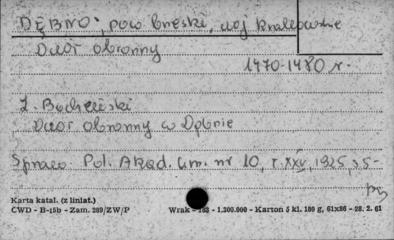 DĘBNO, pow. brzeski, woj. krakowskie
Dwór obronny
1470-1480 r.
Z. Bocheński
Dwór obronny w Dębnie
Spraw. Pol. Akad. Um. nr 10, r. XXV, 1925, s 5-
Karta katal. (z liniat.)
CWD - B-15b - Zam. 289/ZW/P Wrak - 183 - 1.200.000 - Karton 5 kl. 180 g, 61x86 - 28. 2. 61